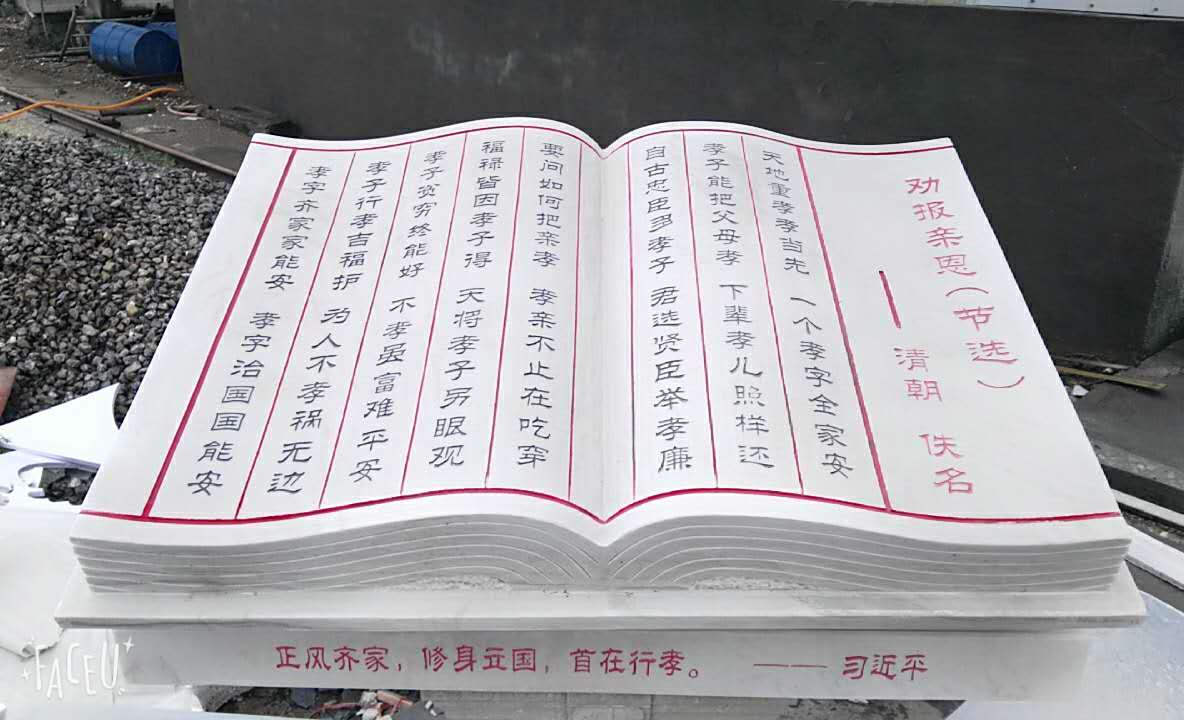 劝报亲恩(节选)
—清朝 佚名
天地重孝孝当先 一个孝字全家安
孝子能把父母孝 下辈孝儿照样还
自古忠臣多孝子 君选贤臣举孝廉
要问如何把亲孝 孝亲不止在吃穿
福禄皆因孝子得 天将孝子另眼观
孝子贫穷终能好 不孝虽富难平安
孝子行孝吉福护 为人不孝祸无边
孝字齐家家能安 孝字治国国能安
正风齐家，修身立国，首在行孝。 —— 习近平
FACEU